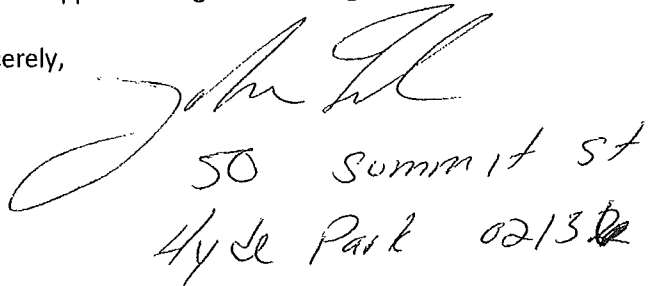 cerely,
John
50 Summit St
Hyde Park 0213